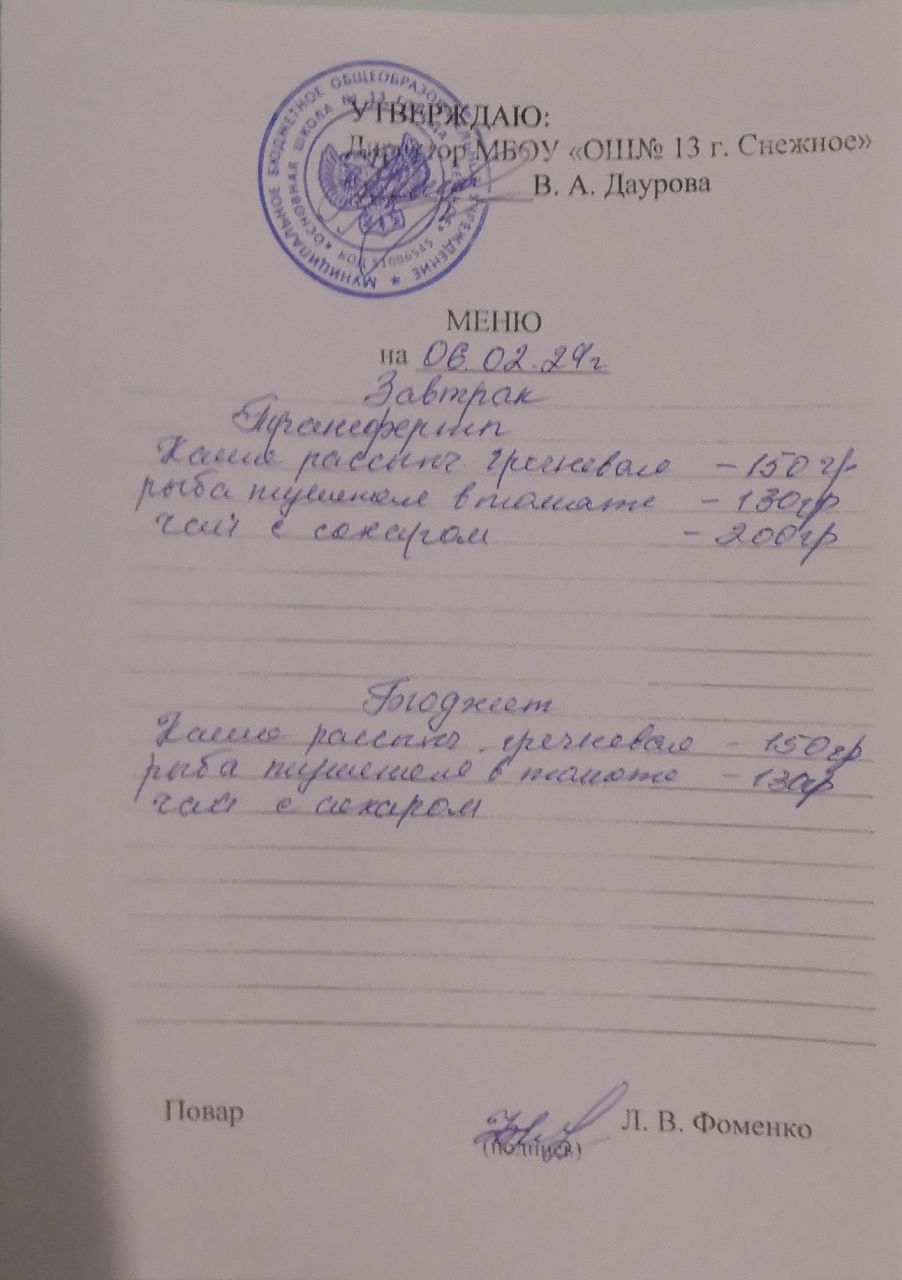 УТВЕРЖДАЮ:
Директор МБОУ «ОШ№ 13 г. Снежное»
В. А. Даурова
МУНИЦИПАЛЬНОЕ БЮДЖЕТНОЕ ОБЩЕОБРАЗОВАТЕЛЬНОЕ УЧРЕЖДЕНИЕ
«ОСНОВНАЯ ШКОЛА № 13 ГОРОДА СНЕЖНОЕ»
КОД 51006545
МЕНЮ
на 06.02.24г
Завтрак
Трансферт
Каша рассыпч. гречневая – 150 гр
рыба тушеная в томате – 130гр
чай с сахаром – 200гр
Бюджет
Каша рассыпч. гречневая – 150гр
рыба тушеная в томате – 130гр
чай с сахаром
Повар
Л. В. Фоменко
(подпись)